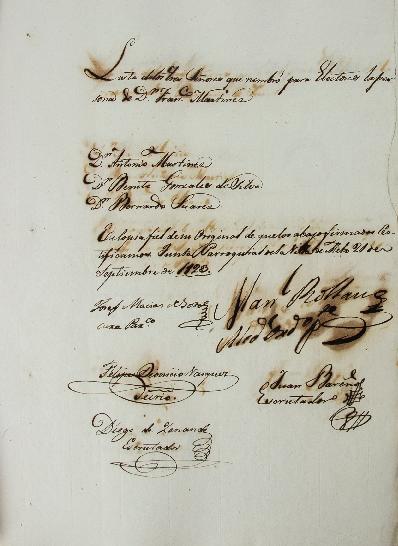 Lista de los tres Señores que nombró para Electores la per
sona de Dⁿ. Franᶜᵒ. Martinez
Dⁿ. Antonio Martinez
Dⁿ. Benito Gonzales de Silva
Dⁿ. Bernardo Suarez
Es Copia fiel de su Original de que los abajo firmados Cer
tificamos Junta Parroquial de la de 21 de
Septiembre de 1823.
Josef Macias
Cura
Man.ˡ Roldan
Felipe Dionicio Vazquez
Secrio.
Juan
Escrutador
Diego de
Escrutador